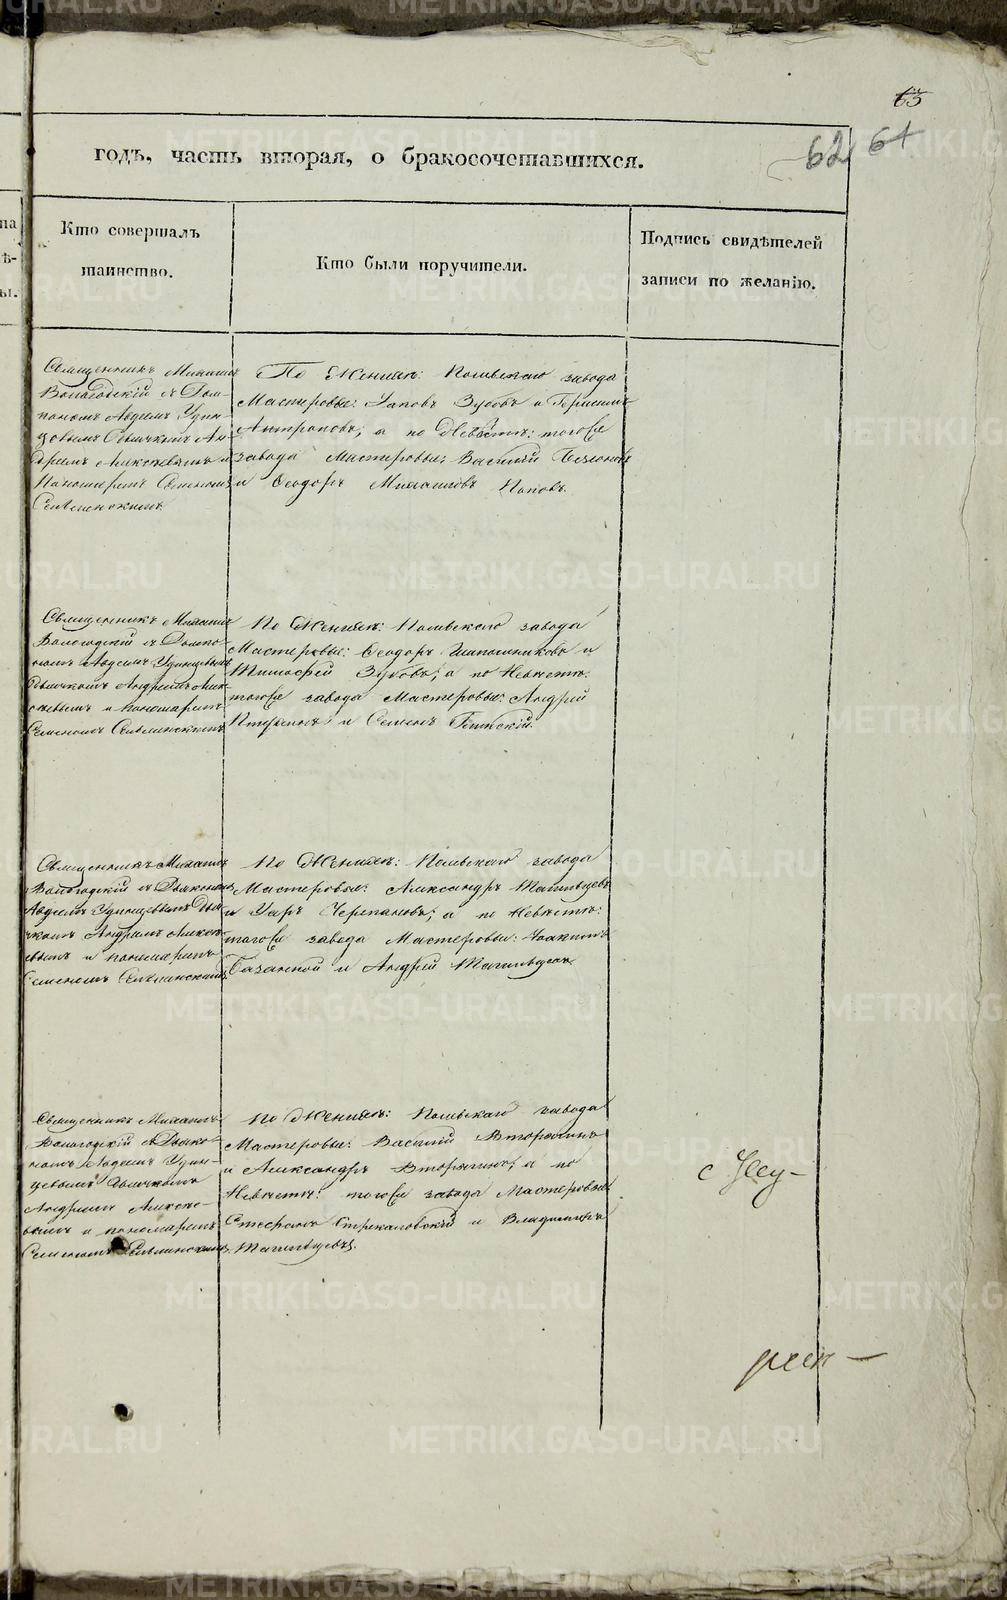 63
62 61
годъ, часть вторая, о бракосочетавшихся.
Кто совершалъ
таинство.
Кто были поручители.
Подпись свидѣтелей
записи по желанію.
Священникъ Михаилъ
Вологодскій съ
Авдеемъ Удин-
цевымъ Дьячкомъ Ан-
дреемъ и
Пономаремъ Семеномъ
По Женихѣ: Полевскаго завода
Мастеровые: Зубовъ и Герасимъ
Антроповъ; а по Невѣстѣ: тогоже
завода Мастеровые: Василій
и Ѳеодоръ Михайловъ Поповъ.
Священникъ Михаилъ
Вологодскій съ Діако-
номъ Авдеемъ Удинцевымъ
Дьячкомъ Андреемъ Алек-
сѣевымъ и пономаремъ
Семеномъ
По Женихѣ: Полевскаго завода
Мастеровые: Ѳеодоръ Шапошниковъ и
Тимофей Зубовъ; а по Невѣстѣ:
тогоже завода Мастеровые: Андрей
и Семенъ
Священникъ Михаилъ
Вологодскій съ Діакономъ
Авдеемъ Удинцевымъ Дья-
чкомъ Андреемъ Алексѣ-
евымъ и пономаремъ
Семеномъ
По Женихѣ: Полевскаго завода
Мастеровые: Александръ Тагильцевъ
и Уаръ Черепановъ; а по Невѣстѣ:
тогоже завода Мастеровые: Іоакимъ
и Андрей Тагильцевъ.
Священникъ Михаилъ
Вологодскій съ Діако-
номъ Авдеемъ Удин-
цевымъ Дьячкомъ
Андреемъ Алексѣ-
евымъ и пономаремъ
Семеномъ
По Женихѣ: Полевскаго завода
Мастеровые: Василій Вторыгинъ
и Александръ Вторыгинъ; а по
Невѣстѣ: тогоже завода Мастеровые
Стефанъ Стрекаловскій и Владиміръ
Тагильцевъ.
METRIKI.GASO-URAL.RU